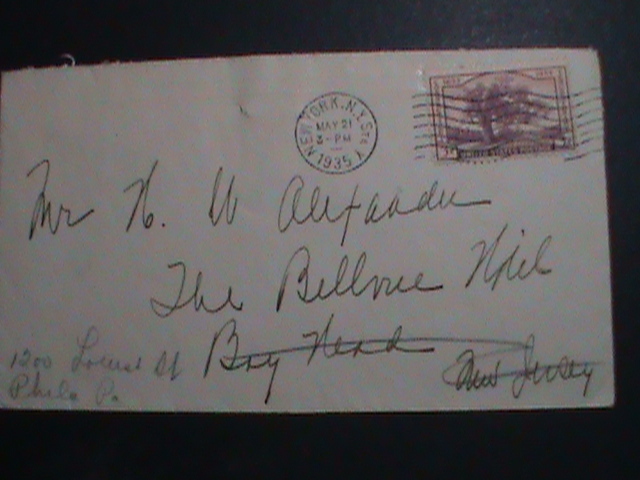 NEW YORK, N.Y. STA. Y
MAY 21
3-PM
1935
UNITED STATES POSTAGE
Mr H. W Alexander
The Bellvue Hotel
Bay Head
New Jersey
1200 Locust St
Phila Pa